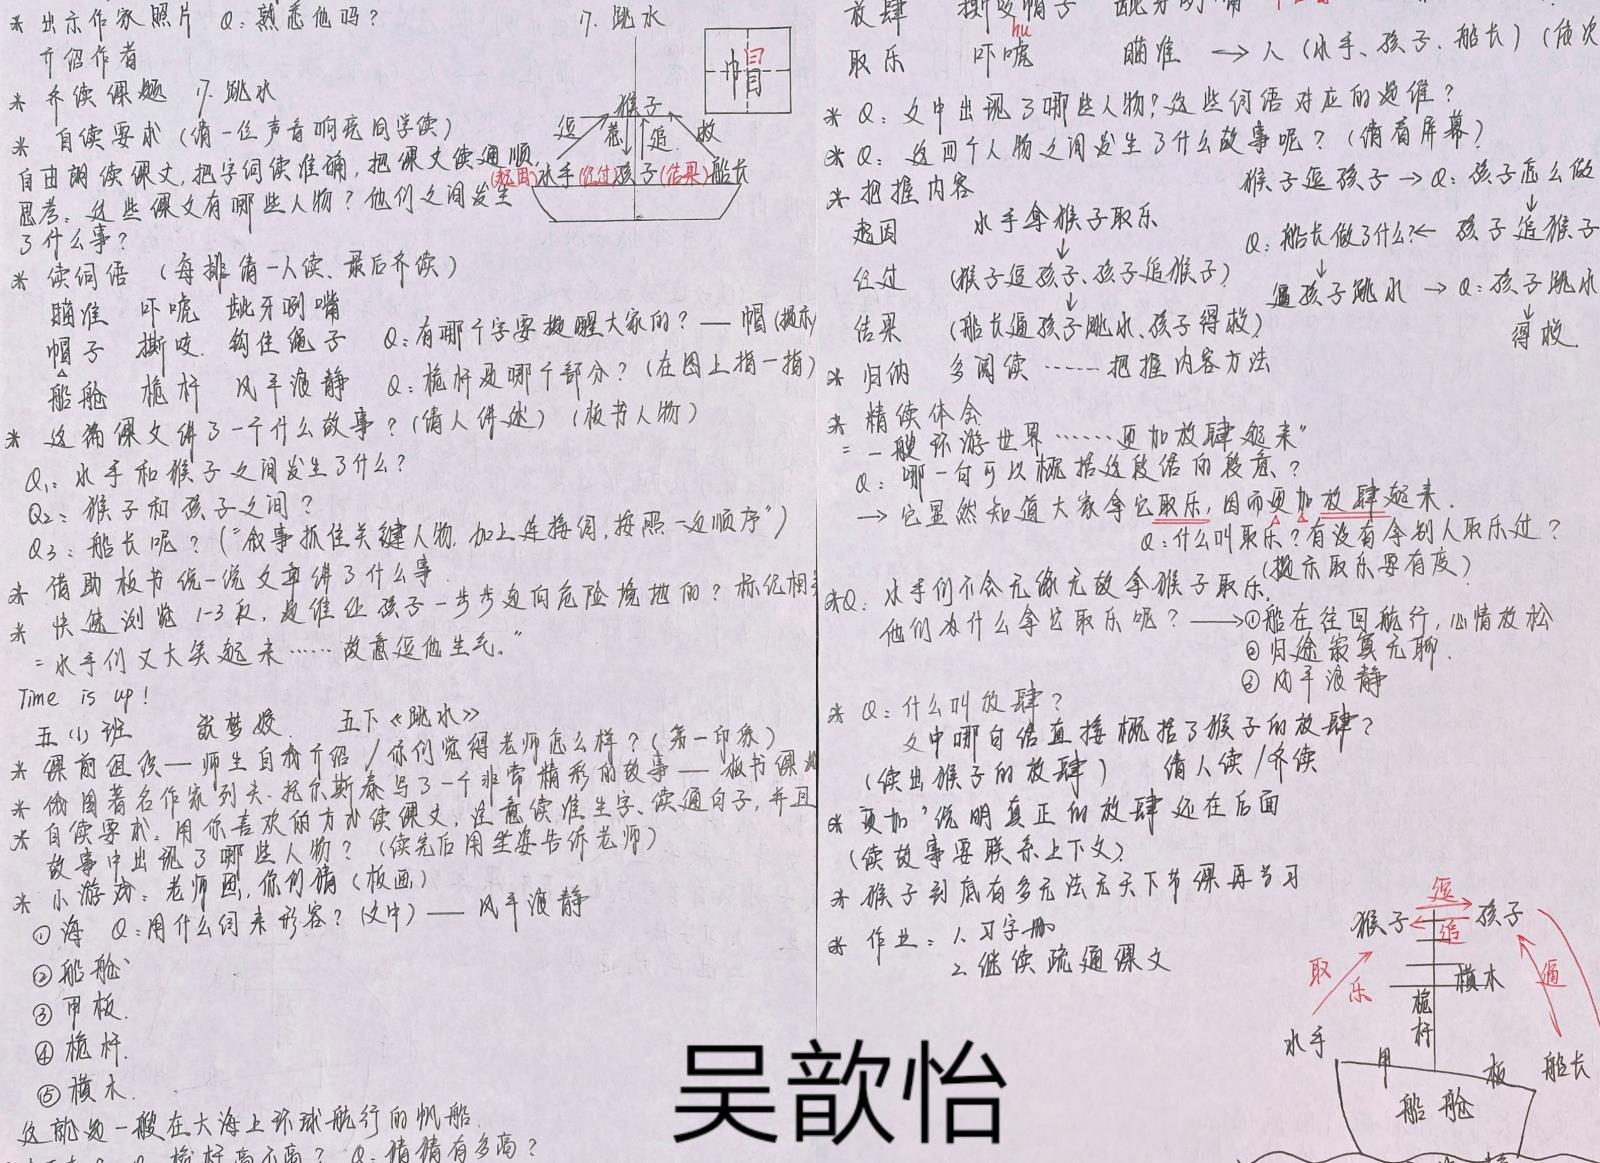 * 出示作家照片 Q:熟悉他吗?
介绍作者
* 齐读课题 17.跳水
* 自读要求(请一位声音响亮同学读)
自由朗读课文,把字词读准确,把课文读通顺.
思考:这些课文有哪些人物?他们之间发生
了什么事?
* 读词语 (每排请一人读、最后齐读)
瞄准 吓唬 龇牙咧嘴
帽子 撕咬. 钩住绳子 Q:有哪个字要提醒大家的?—— 帽(提示
船舱 桅杆 风平浪静 Q:桅杆是哪个部分?(在图上指一指)
* 这篇课文讲了一个什么故事?(请人讲述)(板书人物)
Q1:水手和猴子之间发生了什么?
Q2:猴子和孩子之间?
Q3:船长呢?("叙事抓住关键人物,加上连接词,按照一定顺序")
* 借助板书说一说文章讲了什么事.
* 快速浏览1-3段,是谁让孩子一步步走向危险境地的?标记相关
= 水手们又大笑起来……故意逗他生气。"
Time is up!
五(1)班 梦媛. 五下《跳水》
* 课前组织—师生自我介绍/你们觉得老师怎么样?(第一印象)
* 俄国著名作家列夫.托尔斯泰写了一个非常精彩的故事——板书课题
* 自读要求:用你喜欢的方式读课文,注意读准生字、读通句子,并且
故事中出现了哪些人物?(读完后用坐姿告诉老师)
* 小游戏:老师画,你们猜(板画)
①海 Q:用什么词来形容?(文中)—— 风平浪静
②船舱
③甲板.
④桅杆.
⑤横木.
这就是一艘在大海上环球航行的帆船.
桅杆高不高?Q:猜猜有多高?
17.跳水
帽
猴子
逗 惹 追 救
(起因)水手(经过)孩子(结果)船长
放肆 撕咬帽子 龇牙咧嘴
hu
取乐 吓唬 瞄准 → 人(水手、孩子、船长)(依次
* Q:文中出现了哪些人物?这些词语对应的是谁?
* Q:这四个人物之间发生了什么故事呢?(请看屏幕)
* 把握内容
起因 水手拿猴子取乐
↓
经过 (猴子逗孩子、孩子追猴子)
↓
结果 (船长逼孩子跳水、孩子得救)
猴子逗孩子→Q:孩子怎么做
↓
Q:船长做了什么?← 孩子追猴子
↓
逼孩子跳水 → Q:孩子跳水
↓
得救.
* 归纳 多阅读……把握内容方法
* 精读体会
= 一艘环游世界……更加放肆起来"
Q:哪一句可以概括这段话的段意?
→ 它显然知道大家拿它取乐,因而更加放肆起来.
Q:什么叫取乐?有没有拿别人取乐过?
(提示取乐要有度)
*Q:水手们不会无缘无故拿猴子取乐.
他们为什么拿它取乐呢?——→①船在往回航行,心情放松
②归途寂寞无聊.
③风平浪静
* Q:什么叫放肆?
文中哪句话直接概括了猴子的放肆?
(读出猴子的放肆) 请人读/齐读
* "更加"说明真正的放肆还在后面
(读故事要联系上下文)
* 猴子到底有多无法无天下节课再学习
* 作业:1.习字册
2.继续疏通课文
逗
猴子 孩子
追
取乐 横木 逼
桅杆
水手 甲板 船长
船舱
吴歆怡